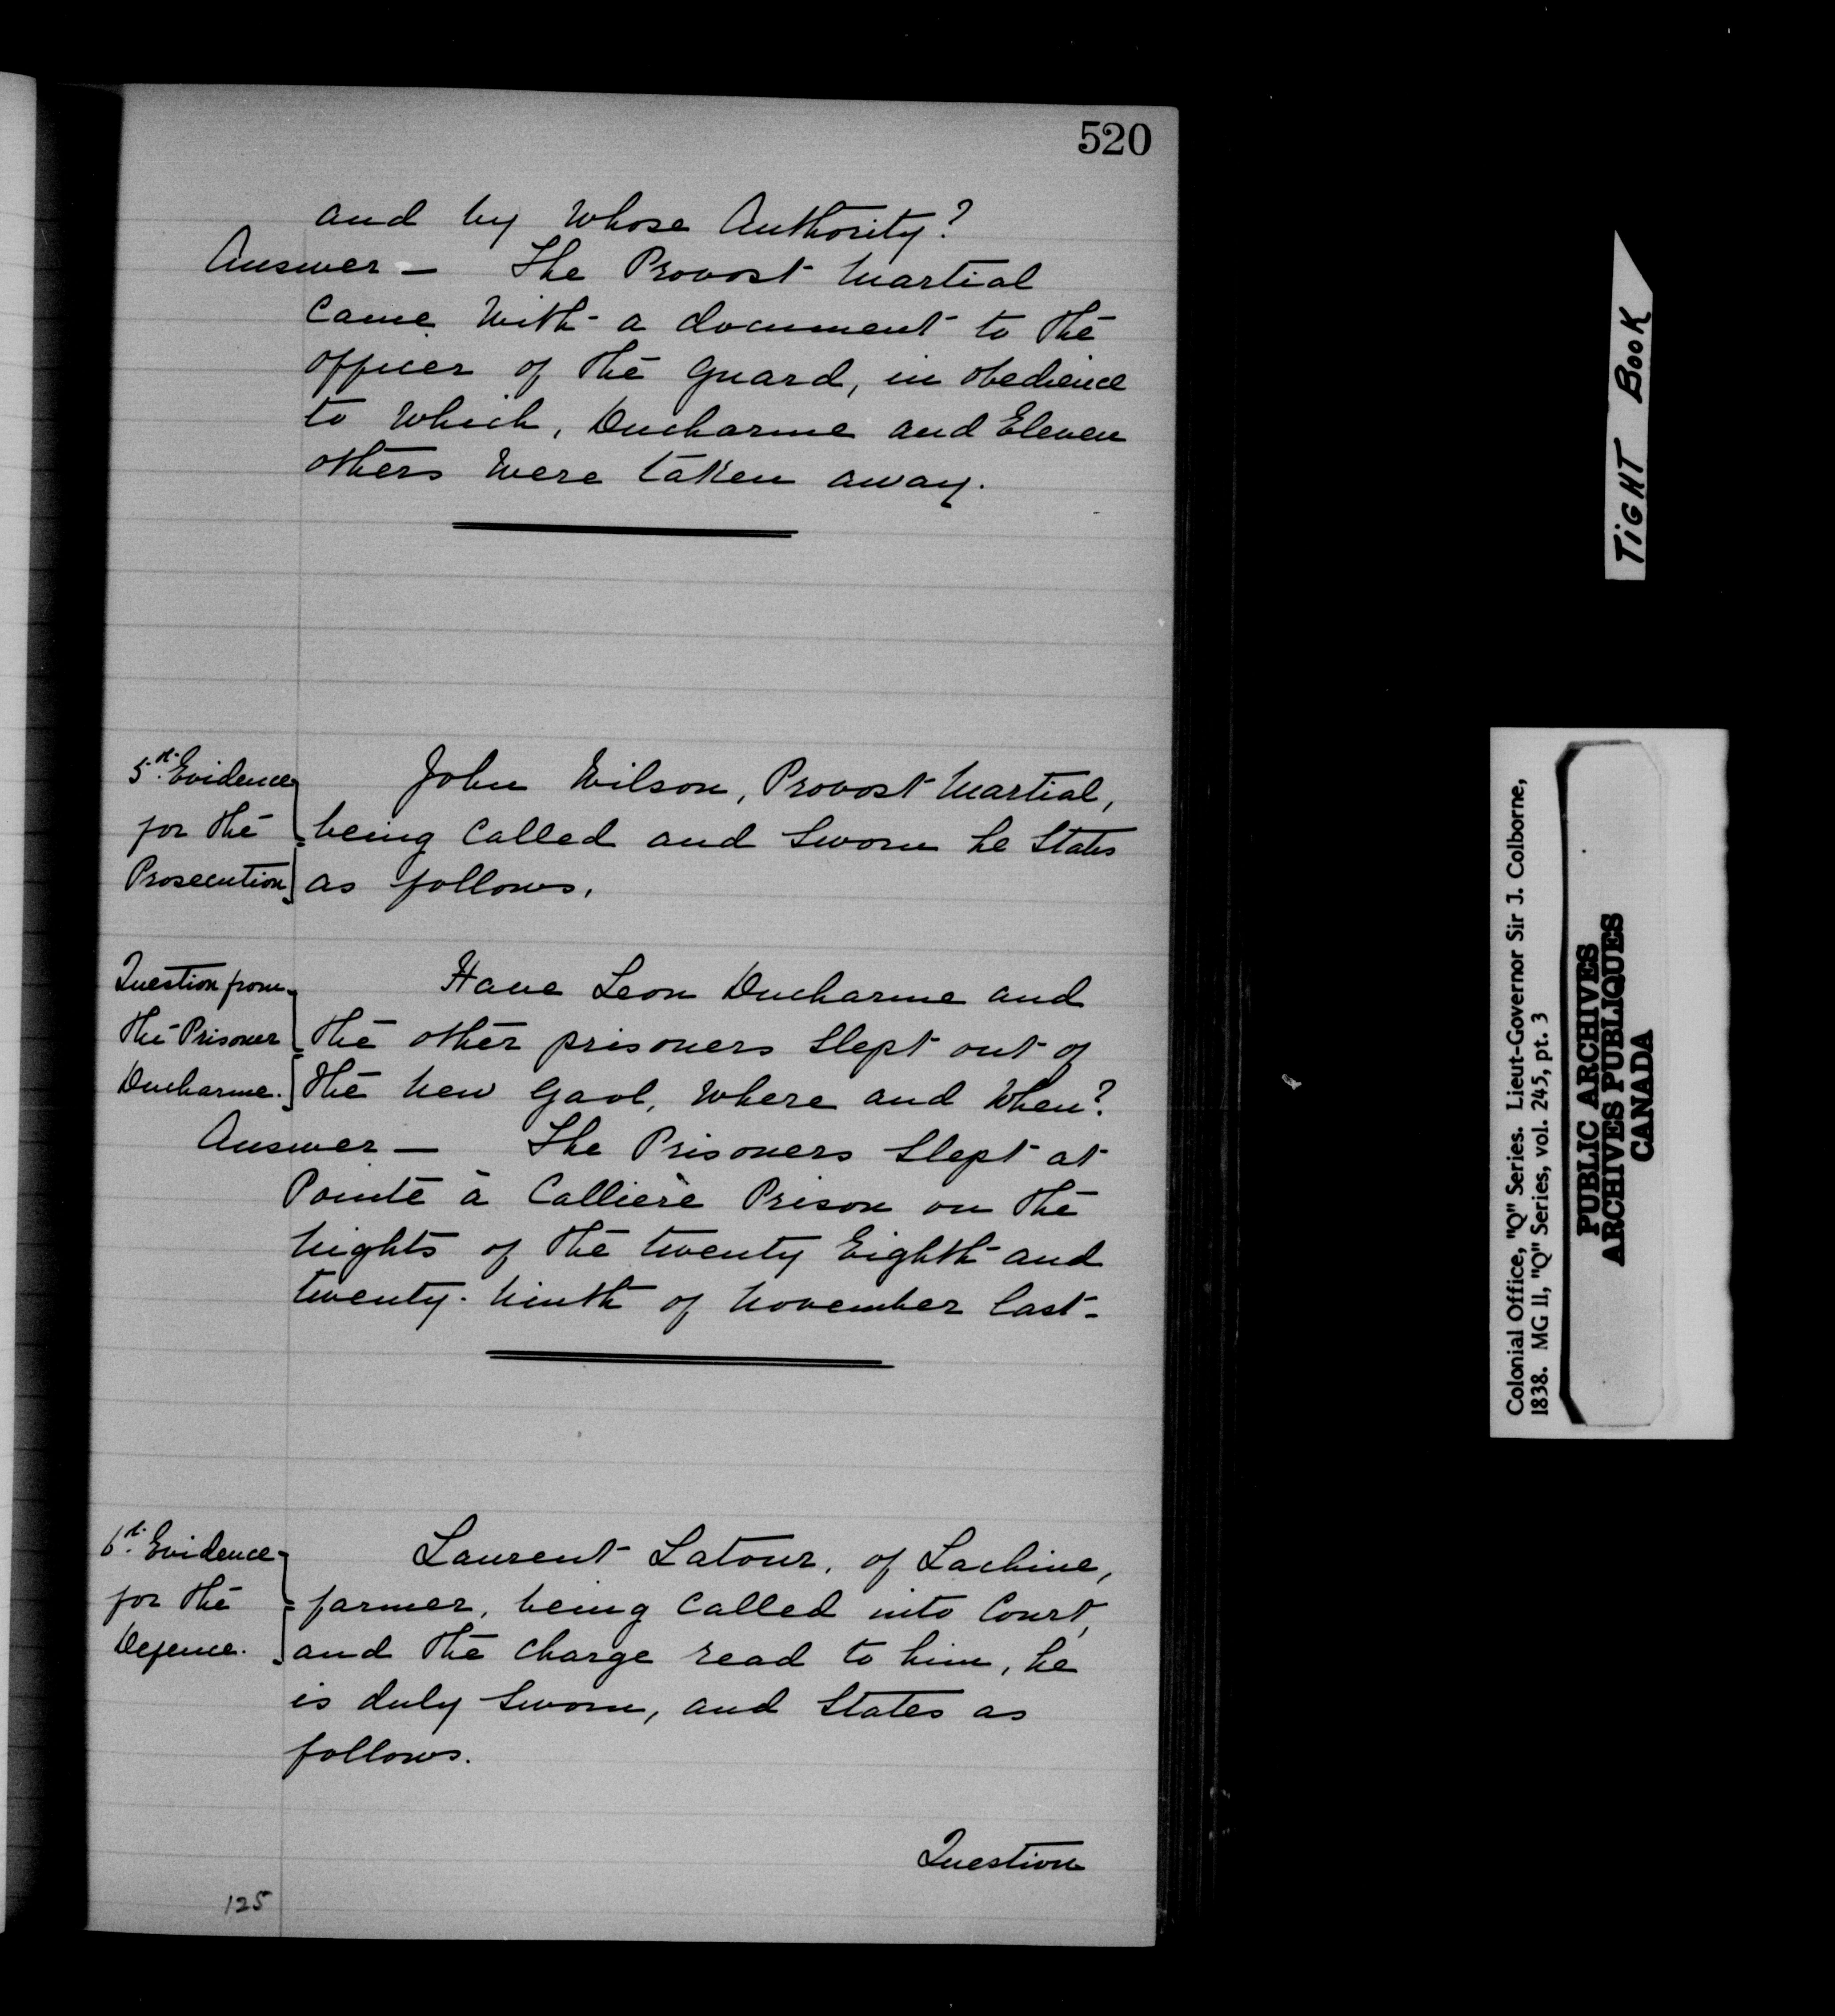 520
and by whose Authority?
Answer — The Provost Martial
came with a document to the
officer of the Guard, in obedience
to which, Ducharme and Eleven
others were taken away.
5th Evidence for the Prosecution
John Wilson, Provost Martial,
being called and sworn he states
as follows.
Question from the Prisoner Ducharme.
Have Leon Ducharme and
the other prisoners slept out of
the new Gaol, where and when?
Answer — The Prisoners slept at
Pointe à Callière Prison on the
nights of the twenty Eighth and
twenty-ninth of November last-
6th Evidence for the Defence.
Laurent Latour, of Lachine,
farmer, being called into Court,
and the charge read to him, he
is duly sworn, and states as
follows.
Question
125
TIGHT BOOK
Colonial Office, "Q" Series. Lieut-Governor Sir J. Colborne,
1838. MG 11, "Q" Series, vol. 245, pt. 3
PUBLIC ARCHIVES
ARCHIVES PUBLIQUES
CANADA